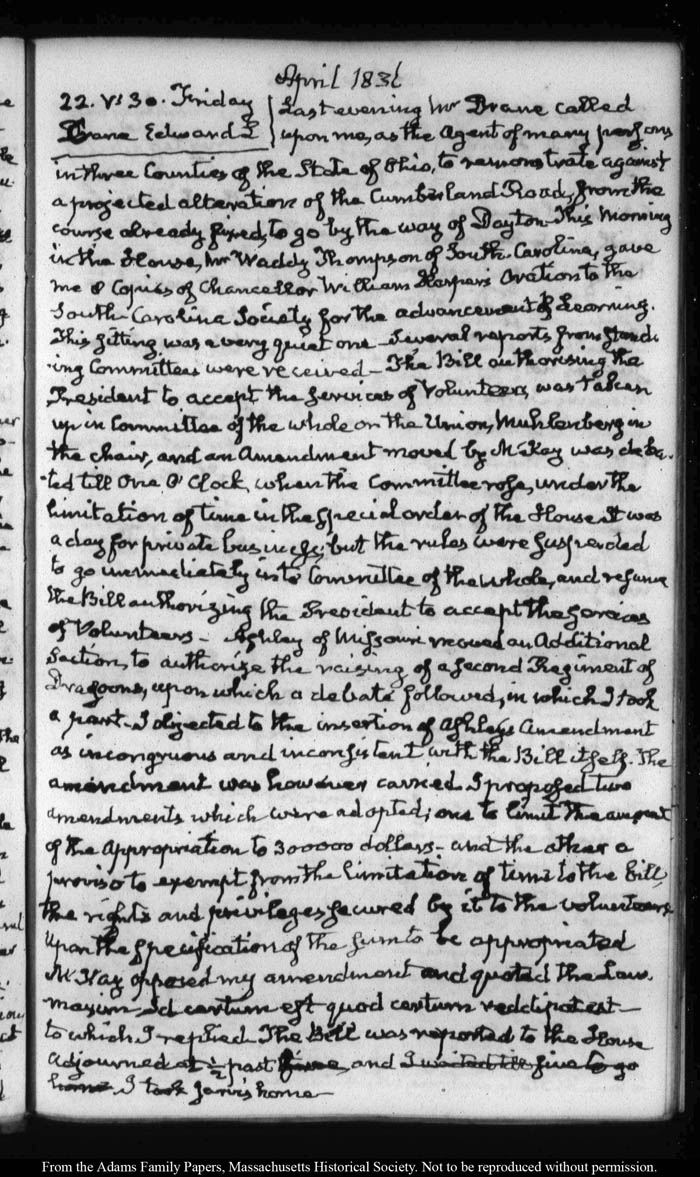 April 1836
22. V:30. Friday
Drane Edward L
Last evening Mr Drane called
upon me, as the Agent of many persons
in three Counties of the State of Ohio, to remonstrate against
a projected alteration of the Cumberland Road, from the
course already fixed, to go by the way of Dayton. This Morning
in the House, Mr Waddy Thompson of South-Carolina, gave
me 8 Copies of Chancellor William Harper's Oration to the
South-Carolina Society for the advancement of Learning.
This sitting was a very quiet one - Several reports from Stand-
ing Committees were received - The Bill authorising the
President to accept the services of Volunteers, was taken
up in Committee of the whole on the Union, Muhlenberg in
the chair, and an Amendment moved by McKay was deba-
ted till One O'Clock, when the Committee rose, under the
limitation of time in the special order of the House. It was
a day for private business; but the rules were suspended
to go immediately into Committee of the whole, and resume
the Bill authorizing the President to accept the services
of Volunteers - Ashley of Missouri moved an Additional
Section, to authorize the raising of a second Regiment of
Dragoons, upon which a debate followed, in which I took
a part. I objected to the insertion of Ashley's Amendment
as incongruous and inconsistent with the Bill itself. The
amendment was however carried. I proposed two
amendments which were adopted; one to limit the amount
of the Appropriation to 300000 dollars - and the other a
proviso to exempt from the limitation of time to the Bill,
the rights and privileges secured by it to the volunteers
Upon the specification of the sum to be appropriated
McKay opposed my amendment and quoted the Law
maxim Id certum est quod certum reddi potest -
to which I replied. The Bill was reported to the House
adjourned at ½ past five, and I waited till five to go
home. I took Jarvis home -
From the Adams Family Papers, Massachusetts Historical Society. Not to be reproduced without permission.